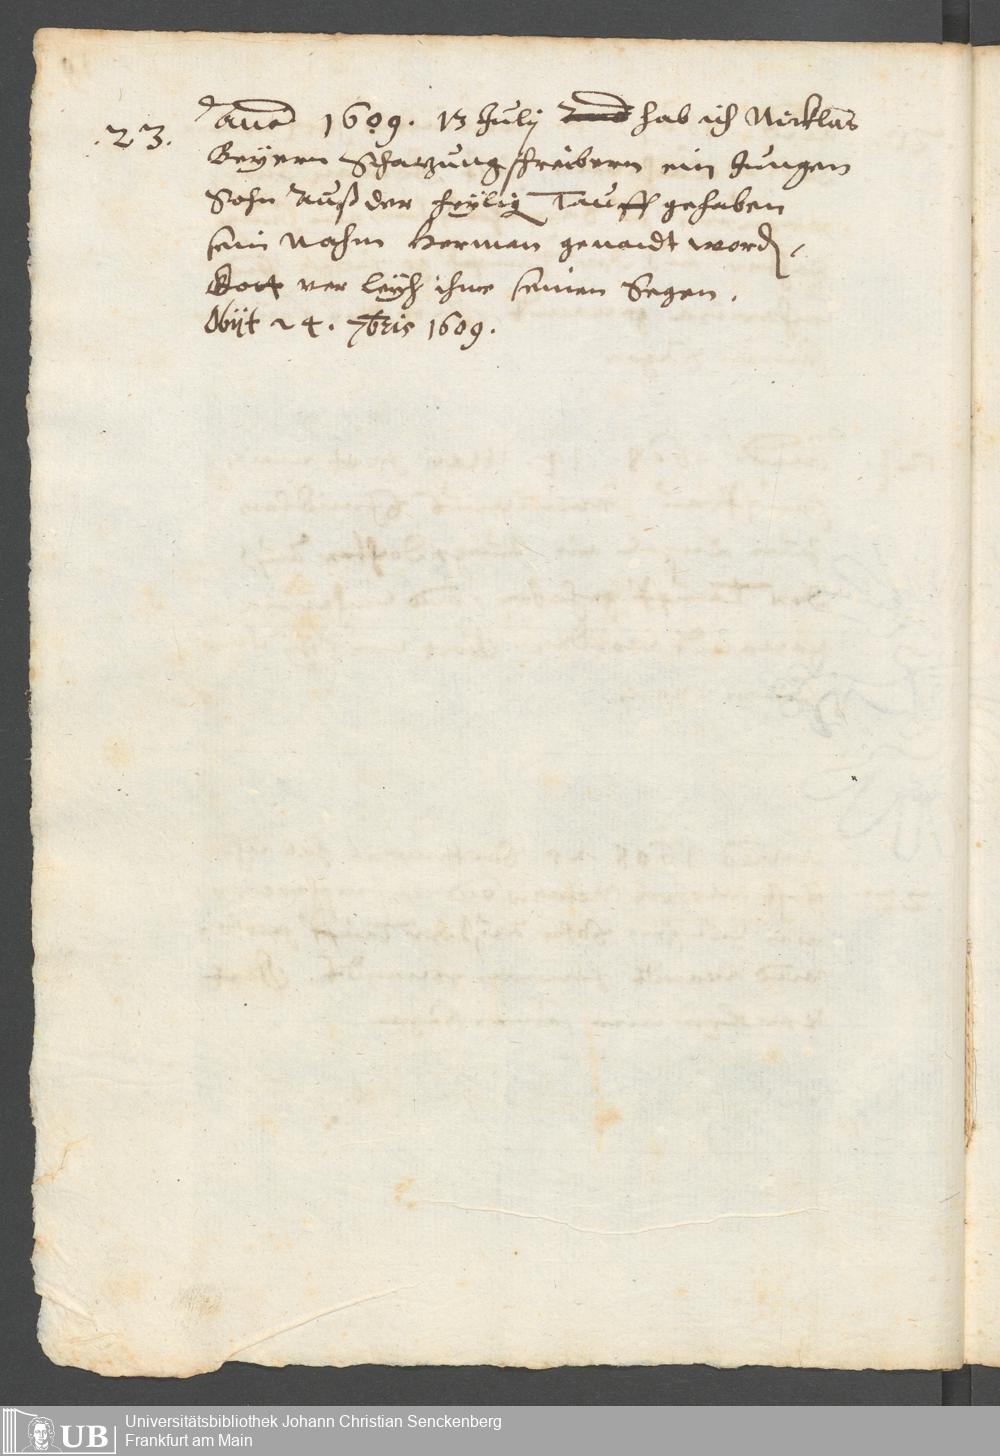 .23. Anno 1609. 13 Julij hab ich Nicklas
Beyern Schatzungschreibern ein Jungen
Sohn Auß der heÿlig Tauff gehaben
sein Nahm Herman genandt word,
Gott ver leÿh ihme seinen Segen.
Obijt 24. 7bris 1609.
UB Universitätsbibliothek Johann Christian Senckenberg
Frankfurt am Main